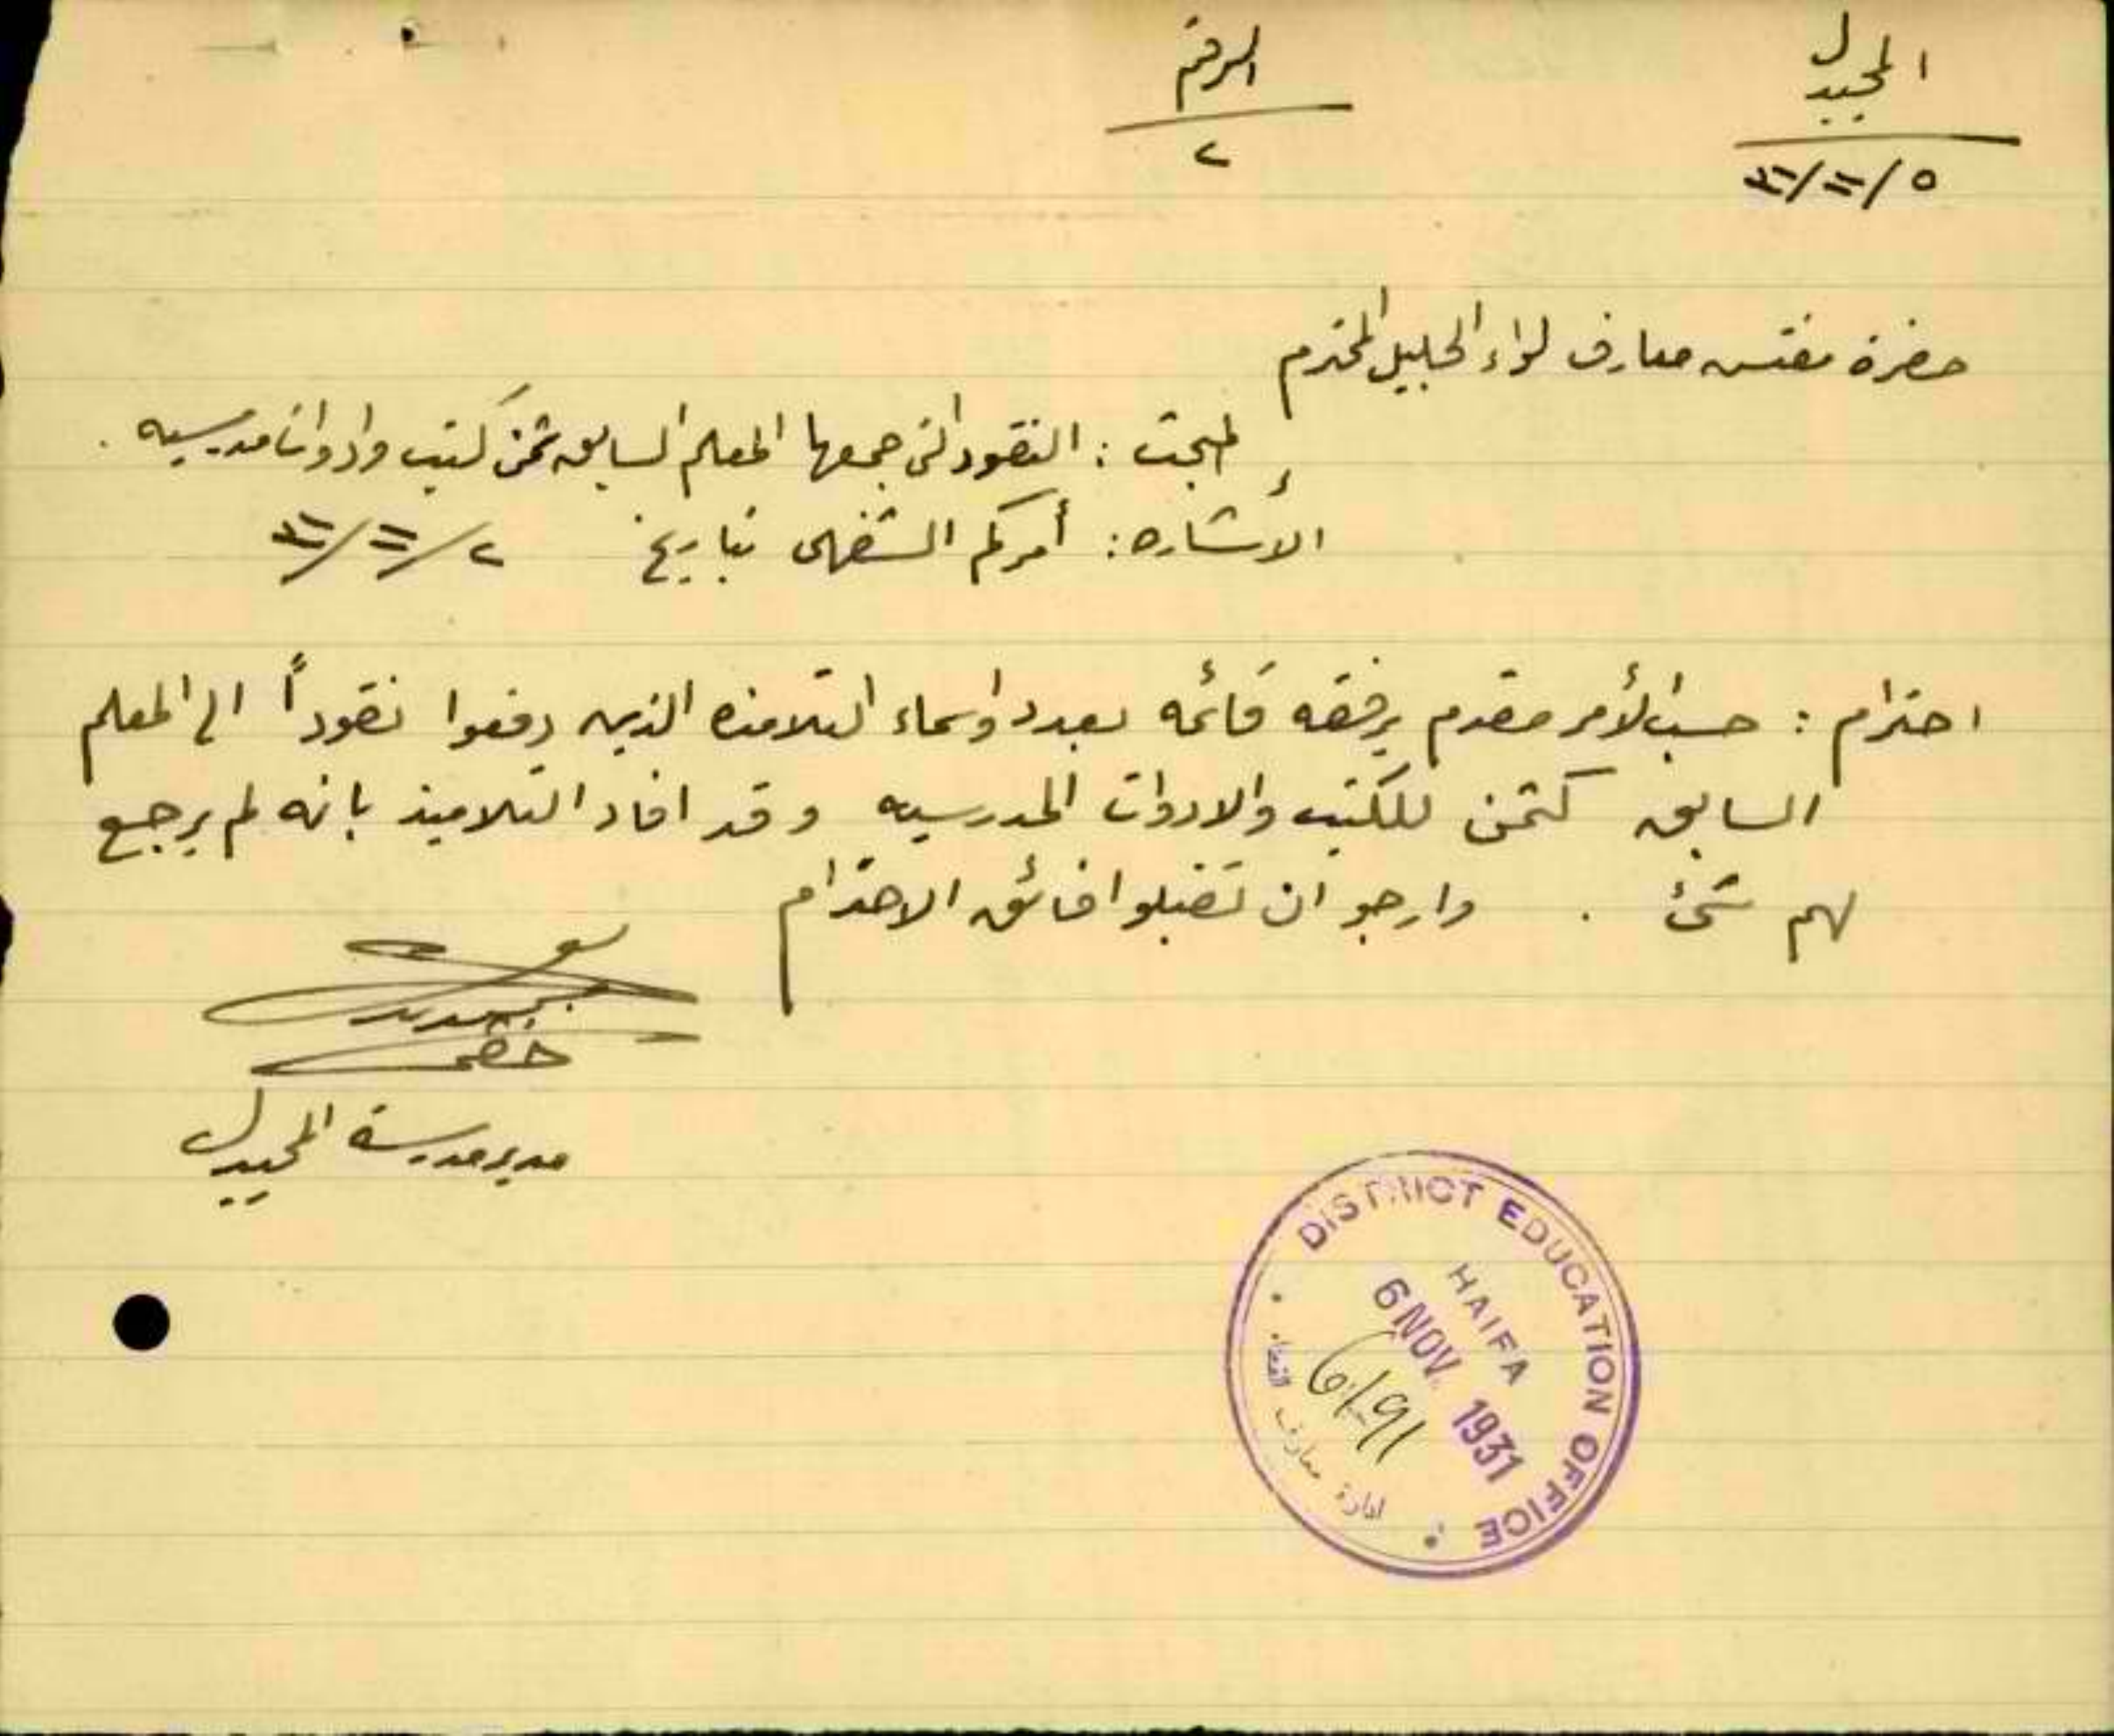 المجيدل
٥/١١/٣١
الرقم
٢
حضرة مفتش معارف لواء الجليل المحترم
المبحث : النقود التي جمعها المعلم السابق ثمن كتب وادوات مدرسيه .
الأشاره : أمركم الشفهي بتاريخ ٢/١١/٣١
احترام : حسب الأمر مقدم برفقه قائمه بعدد واسماء التلامذه الذين دفعوا نقوداً الى المعلم
السابق كثمن للكتب والادوات المدرسيه وقد افاد التلاميذ بانه لم يرجع
لهم شئ . وارجو ان تقبلوا فائق الاحترام
مدير مدرسة المجيدل
DISTRICT EDUCATION OFFICE
HAIFA
6 NOV. 1931
ادارة معارف القضاء